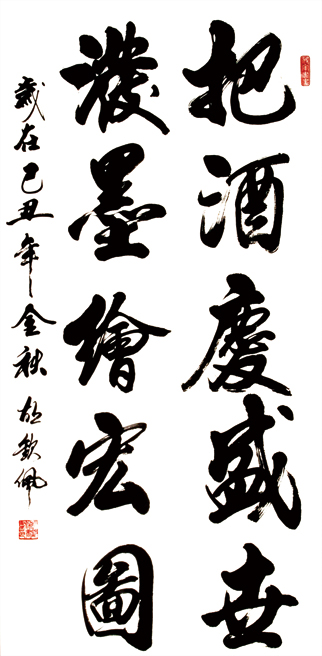 把酒慶盛世
潑墨繪宏圖
歲在己丑年金秋胡欽佩